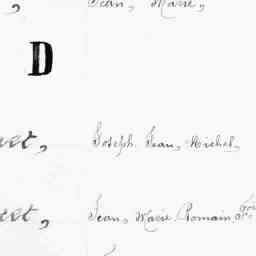 , Jean, Marie,
D
et, Joseph. Jean, Michel,
et, Jean, Marie, Romain,